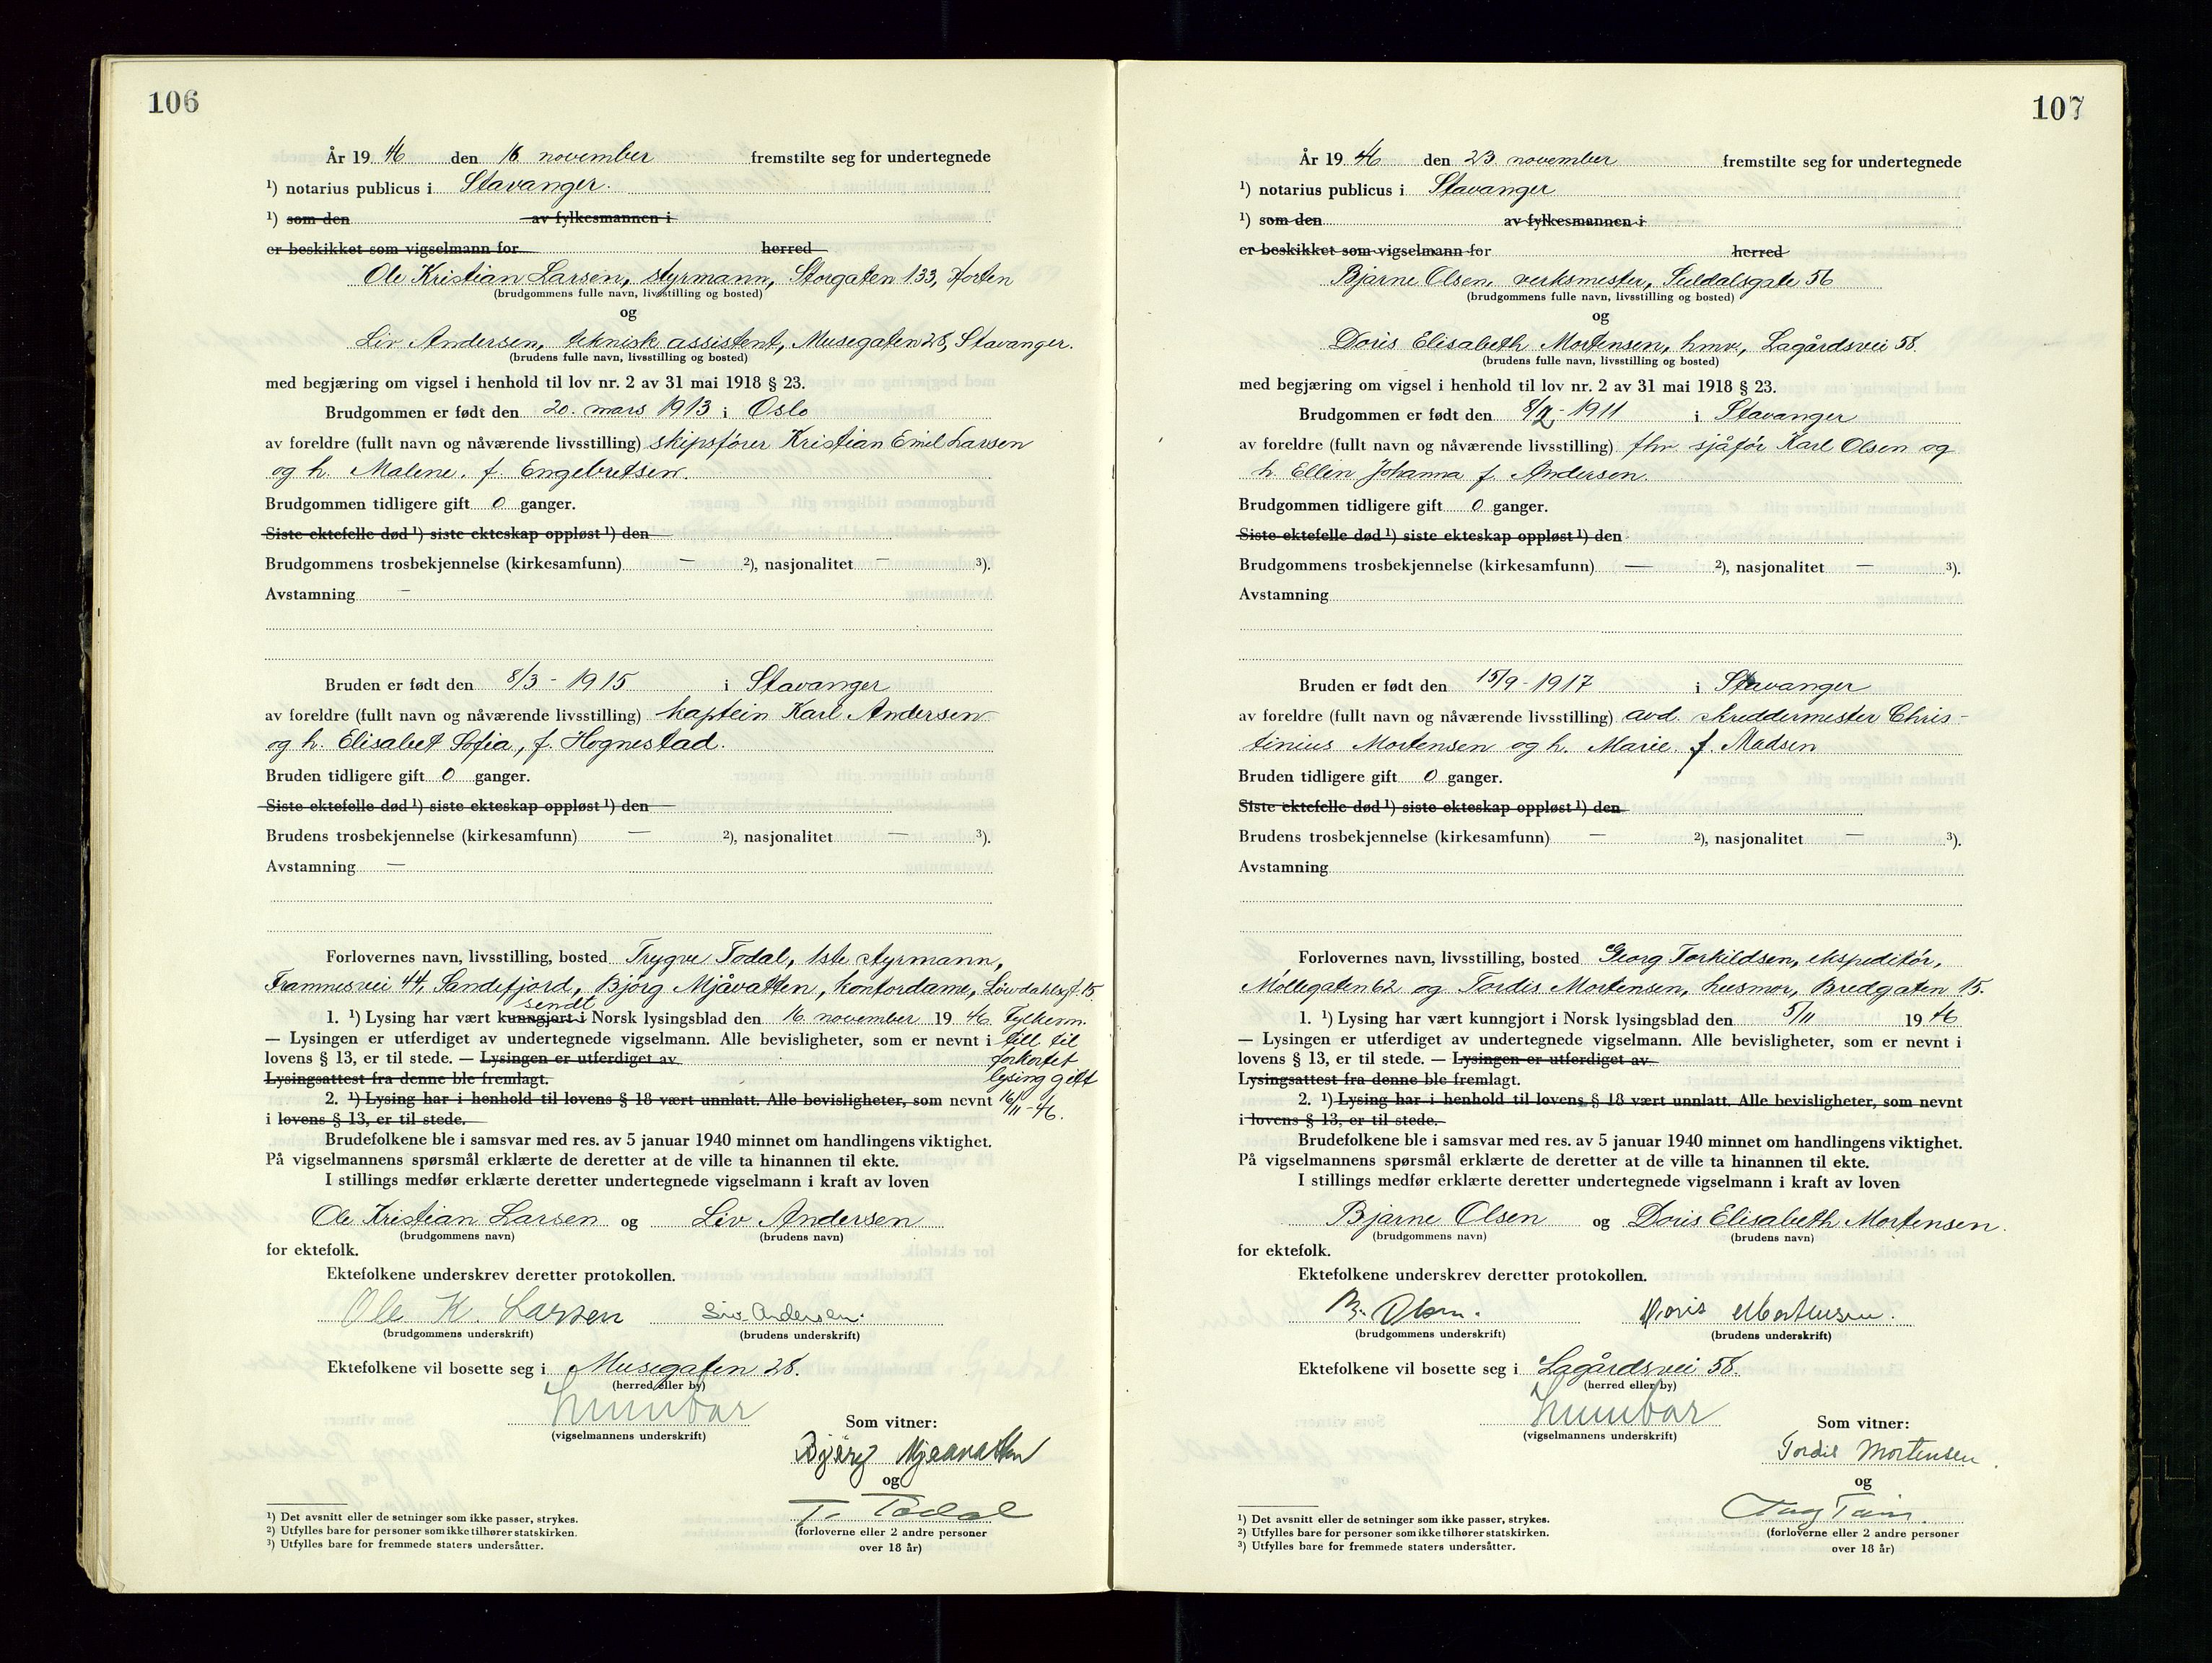 106
År 19 46 den 16 november fremstilte seg for undertegnede
¹) notarius publicus i Stavanger.
¹) som den av fylkesmannen i
er beskikket som vigselmann for herred
Ole Kristian Larsen, styrmann, Storgaten 133, Horten
(brudgommens fulle navn, livsstilling og bosted)
og
Liv Andersen, teknisk assistent, Musegaten 28, Stavanger.
(brudens fulle navn, livsstilling og bosted)
med begjæring om vigsel i henhold til lov nr. 2 av 31 mai 1918 § 23.
Brudgommen er født den 20. mars 1913 i Oslo
av foreldre (fullt navn og nåværende livsstilling) skipsfører Kristian Emil Larsen
og h. Malene, f. Engebretsen.
Brudgommen tidligere gift 0 ganger.
Siste ektefelle død ¹) siste ekteskap oppløst ¹) den
Brudgommens trosbekjennelse (kirkesamfunn) — ²), nasjonalitet — ³).
Avstamning —
Bruden er født den 8/3 - 1915 i Stavanger
av foreldre (fullt navn og nåværende livsstilling) kaptein Karl Andersen
og h. Elisabet Sofia, f. Hognestad.
Bruden tidligere gift 0 ganger.
Siste ektefelle død ¹) siste ekteskap oppløst ¹) den
Brudens trosbekjennelse (kirkesamfunn) — ²), nasjonalitet — ³).
Avstamning —
Forlovernes navn, livsstilling, bosted Trygve Todal, 1ste styrmann,
Framnesvei 44, Sandefjord, Bjørg Mjåvatten, kontordame, Løwdahlsgt. 15
sendt
1. ¹) Lysing har vært kunngjort i Norsk lysingsblad den 16 november 19 46 Fylkesm.
— Lysingen er utferdiget av undertegnede vigselmann. Alle bevisligheter, som er nevnt i till til
lovens § 13, er til stede. — Lysingen er utferdiget av forkortet
Lysingsattest fra denne ble fremlagt. lysing gitt
2. ¹) Lysing har i henhold til lovens § 18 vært unnlatt. Alle bevisligheter, som nevnt 16/11-46.
i lovens § 13, er til stede.
Brudefolkene ble i samsvar med res. av 5 januar 1940 minnet om handlingens viktighet.
På vigselmannens spørsmål erklærte de deretter at de ville ta hinannen til ekte.
I stillings medfør erklærte deretter undertegnede vigselmann i kraft av loven
Ole Kristian Larsen og Liv Andersen
(brudgommens navn) (brudens navn)
for ektefolk.
Ektefolkene underskrev deretter protokollen.
Ole K. Larsen Liv Andersen.
(brudgommens underskrift) (brudens underskrift)
Ektefolkene vil bosette seg i Musegaten 28.
(herred eller by)
Som vitner:
(vigselmannens underskrift)
Bjørg Mjaavatten
og
T. Todal
(forloverne eller 2 andre personer
over 18 år)
¹) Det avsnitt eller de setninger som ikke passer, strykes.
²) Utfylles bare for personer som ikke tilhører statskirken.
³) Utfylles bare for fremmede staters undersåtter.
107
År 19 46 den 23 november fremstilte seg for undertegnede
¹) notarius publicus i Stavanger
¹) som den av fylkesmannen i
er beskikket som vigselmann for herred
Bjarne Olsen, verksmester, Suldalsgate 56
(brudgommens fulle navn, livsstilling og bosted)
og
Doris Elisabeth Mortensen, hmv, Lagårdsvei 58.
(brudens fulle navn, livsstilling og bosted)
med begjæring om vigsel i henhold til lov nr. 2 av 31 mai 1918 § 23.
Brudgommen er født den - 1911 i Stavanger
av foreldre (fullt navn og nåværende livsstilling) fhv. sjåfør Karl Olsen og
h. Ellen Johanna f. Andersen.
Brudgommen tidligere gift 0 ganger.
Siste ektefelle død ¹) siste ekteskap oppløst ¹) den
Brudgommens trosbekjennelse (kirkesamfunn) — ²), nasjonalitet — ³).
Avstamning
Bruden er født den 15/9 - 1917 i Stavanger
av foreldre (fullt navn og nåværende livsstilling) avd. skreddermester Chris-
tinius Mortensen og h. Marie f. Madsen
Bruden tidligere gift 0 ganger.
Siste ektefelle død ¹) siste ekteskap oppløst ¹) den
Brudens trosbekjennelse (kirkesamfunn) — ²), nasjonalitet — ³).
Avstamning
Forlovernes navn, livsstilling, bosted Georg Torkildsen, ekspeditør,
Møllegaten 62 og Tordis Mortensen, husmor, Bredgaten 15.
1. ¹) Lysing har vært kunngjort i Norsk lysingsblad den 5/11 19 46
— Lysingen er utferdiget av undertegnede vigselmann. Alle bevisligheter, som er nevnt i
lovens § 13, er til stede. — Lysingen er utferdiget av
Lysingsattest fra denne ble fremlagt.
2. ¹) Lysing har i henhold til lovens § 18 vært unnlatt. Alle bevisligheter, som nevnt
i lovens § 13, er til stede.
Brudefolkene ble i samsvar med res. av 5 januar 1940 minnet om handlingens viktighet.
På vigselmannens spørsmål erklærte de deretter at de ville ta hinannen til ekte.
I stillings medfør erklærte deretter undertegnede vigselmann i kraft av loven
Bjarne Olsen og Doris Elisabeth Mortensen.
(brudgommens navn) (brudens navn)
for ektefolk.
Ektefolkene underskrev deretter protokollen.
B. Olsen. Doris Mortensen.
(brudgommens underskrift) (brudens underskrift)
Ektefolkene vil bosette seg i Lagårdsvei 58.
(herred eller by)
Som vitner:
(vigselmannens underskrift)
Tordis Mortensen
og
(forloverne eller 2 andre personer
over 18 år)
¹) Det avsnitt eller de setninger som ikke passer, strykes.
²) Utfylles bare for personer som ikke tilhører statskirken.
³) Utfylles bare for fremmede staters undersåtter.